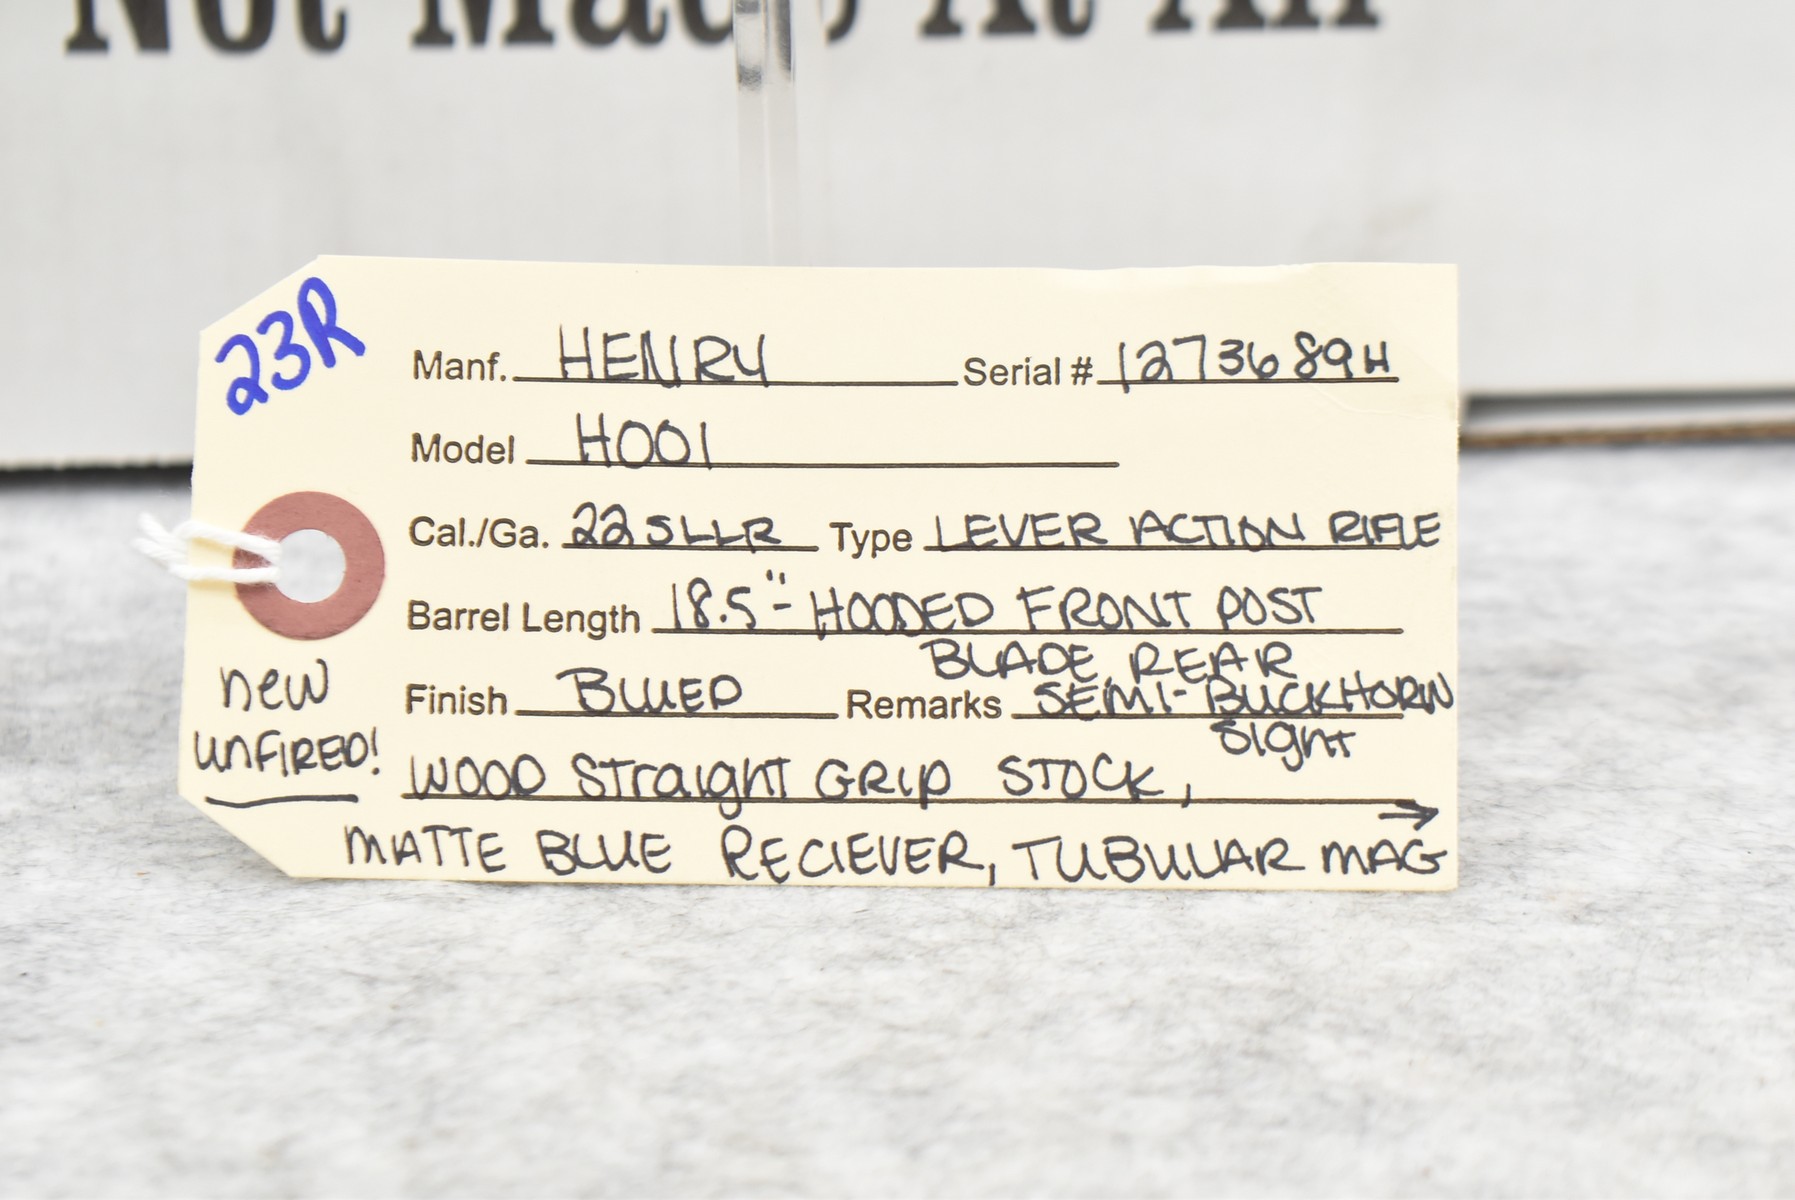 Not Made, At All
23R
Manf. HENRY Serial # 1273689H
Model H001
Cal./Ga. 22SLLR Type LEVER ACTION RIFLE
Barrel Length 18.5"- HOODED FRONT POST
BLADE, REAR
Finish BLUED Remarks SEMI-BUCKHORN
Sight
new
unFIRED!
WOOD Straight GRIP STOCK, →
MATTE BLUE RECIEVER, TUBULAR MAG